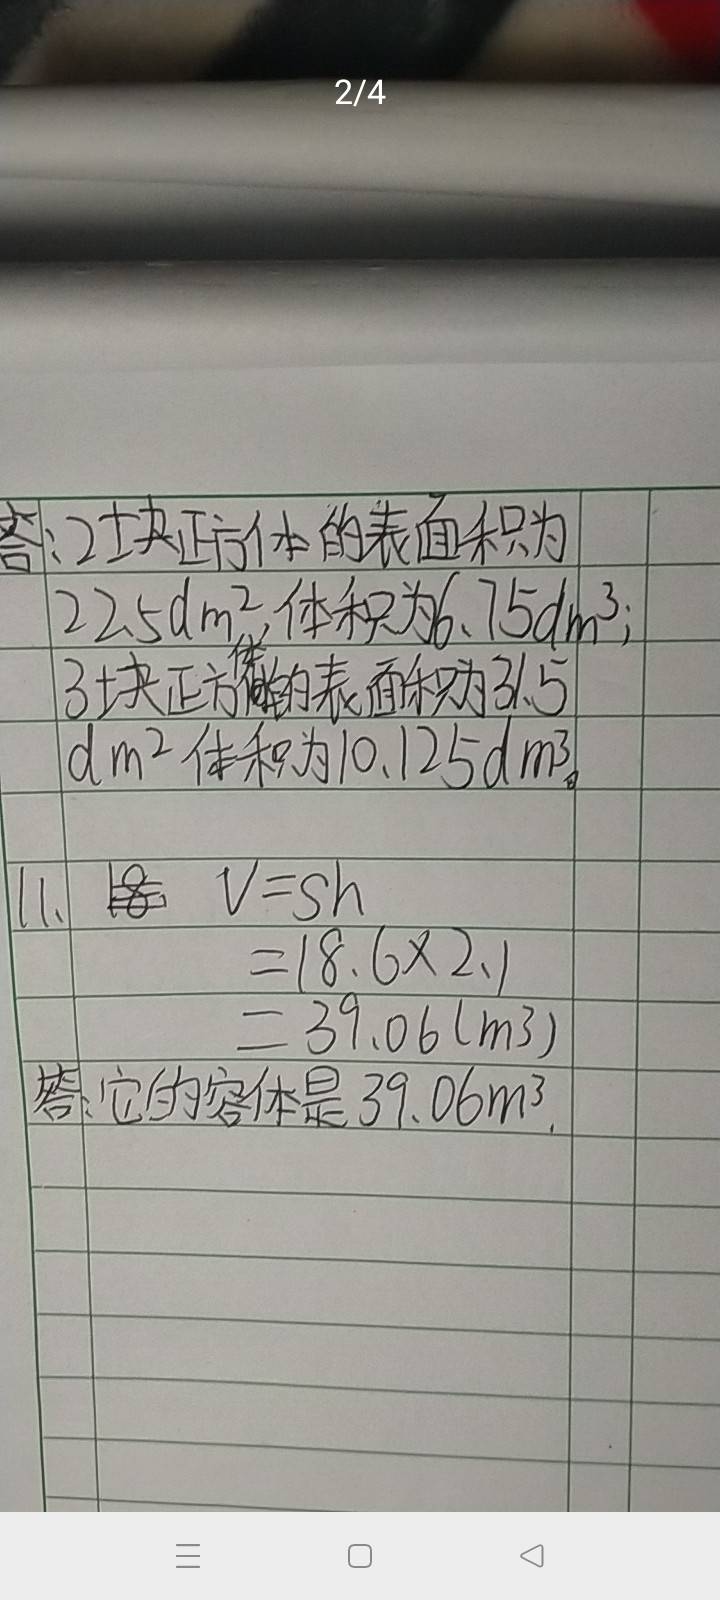 2/4
答:2块正方体的表面积为
22.5dm²,体积为6.75dm³;
3块正方体的表面积为31.5
dm²体积为10.125dm³。
11. V=Sh
=18.6×2.1
=39.06(m3)
答:它的容体是39.06m³.